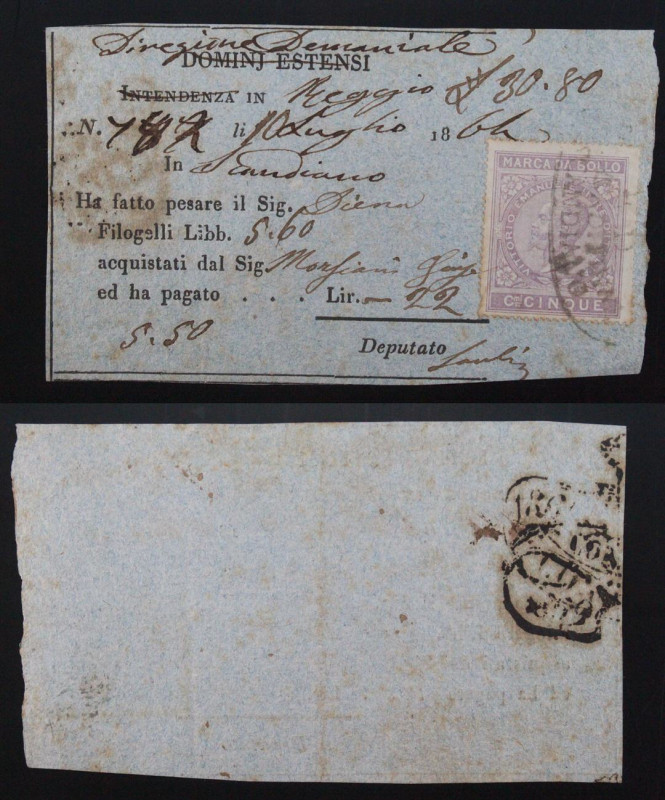 Diregione Demaniale
DOMINJ ESTENSI
INTENDENZA IN Reggio 30.80
N. li 10 Luglio 1864
In Scandiano
Ha fatto pesare il Sig. Diena
Filogelli Libb. 5.60
acquistati dal Sig.
ed ha pagato . . . Lir. 22
5.50
Deputato
MARCA DA BOLLO
VITTORIO EMANUELE
C. CINQUE